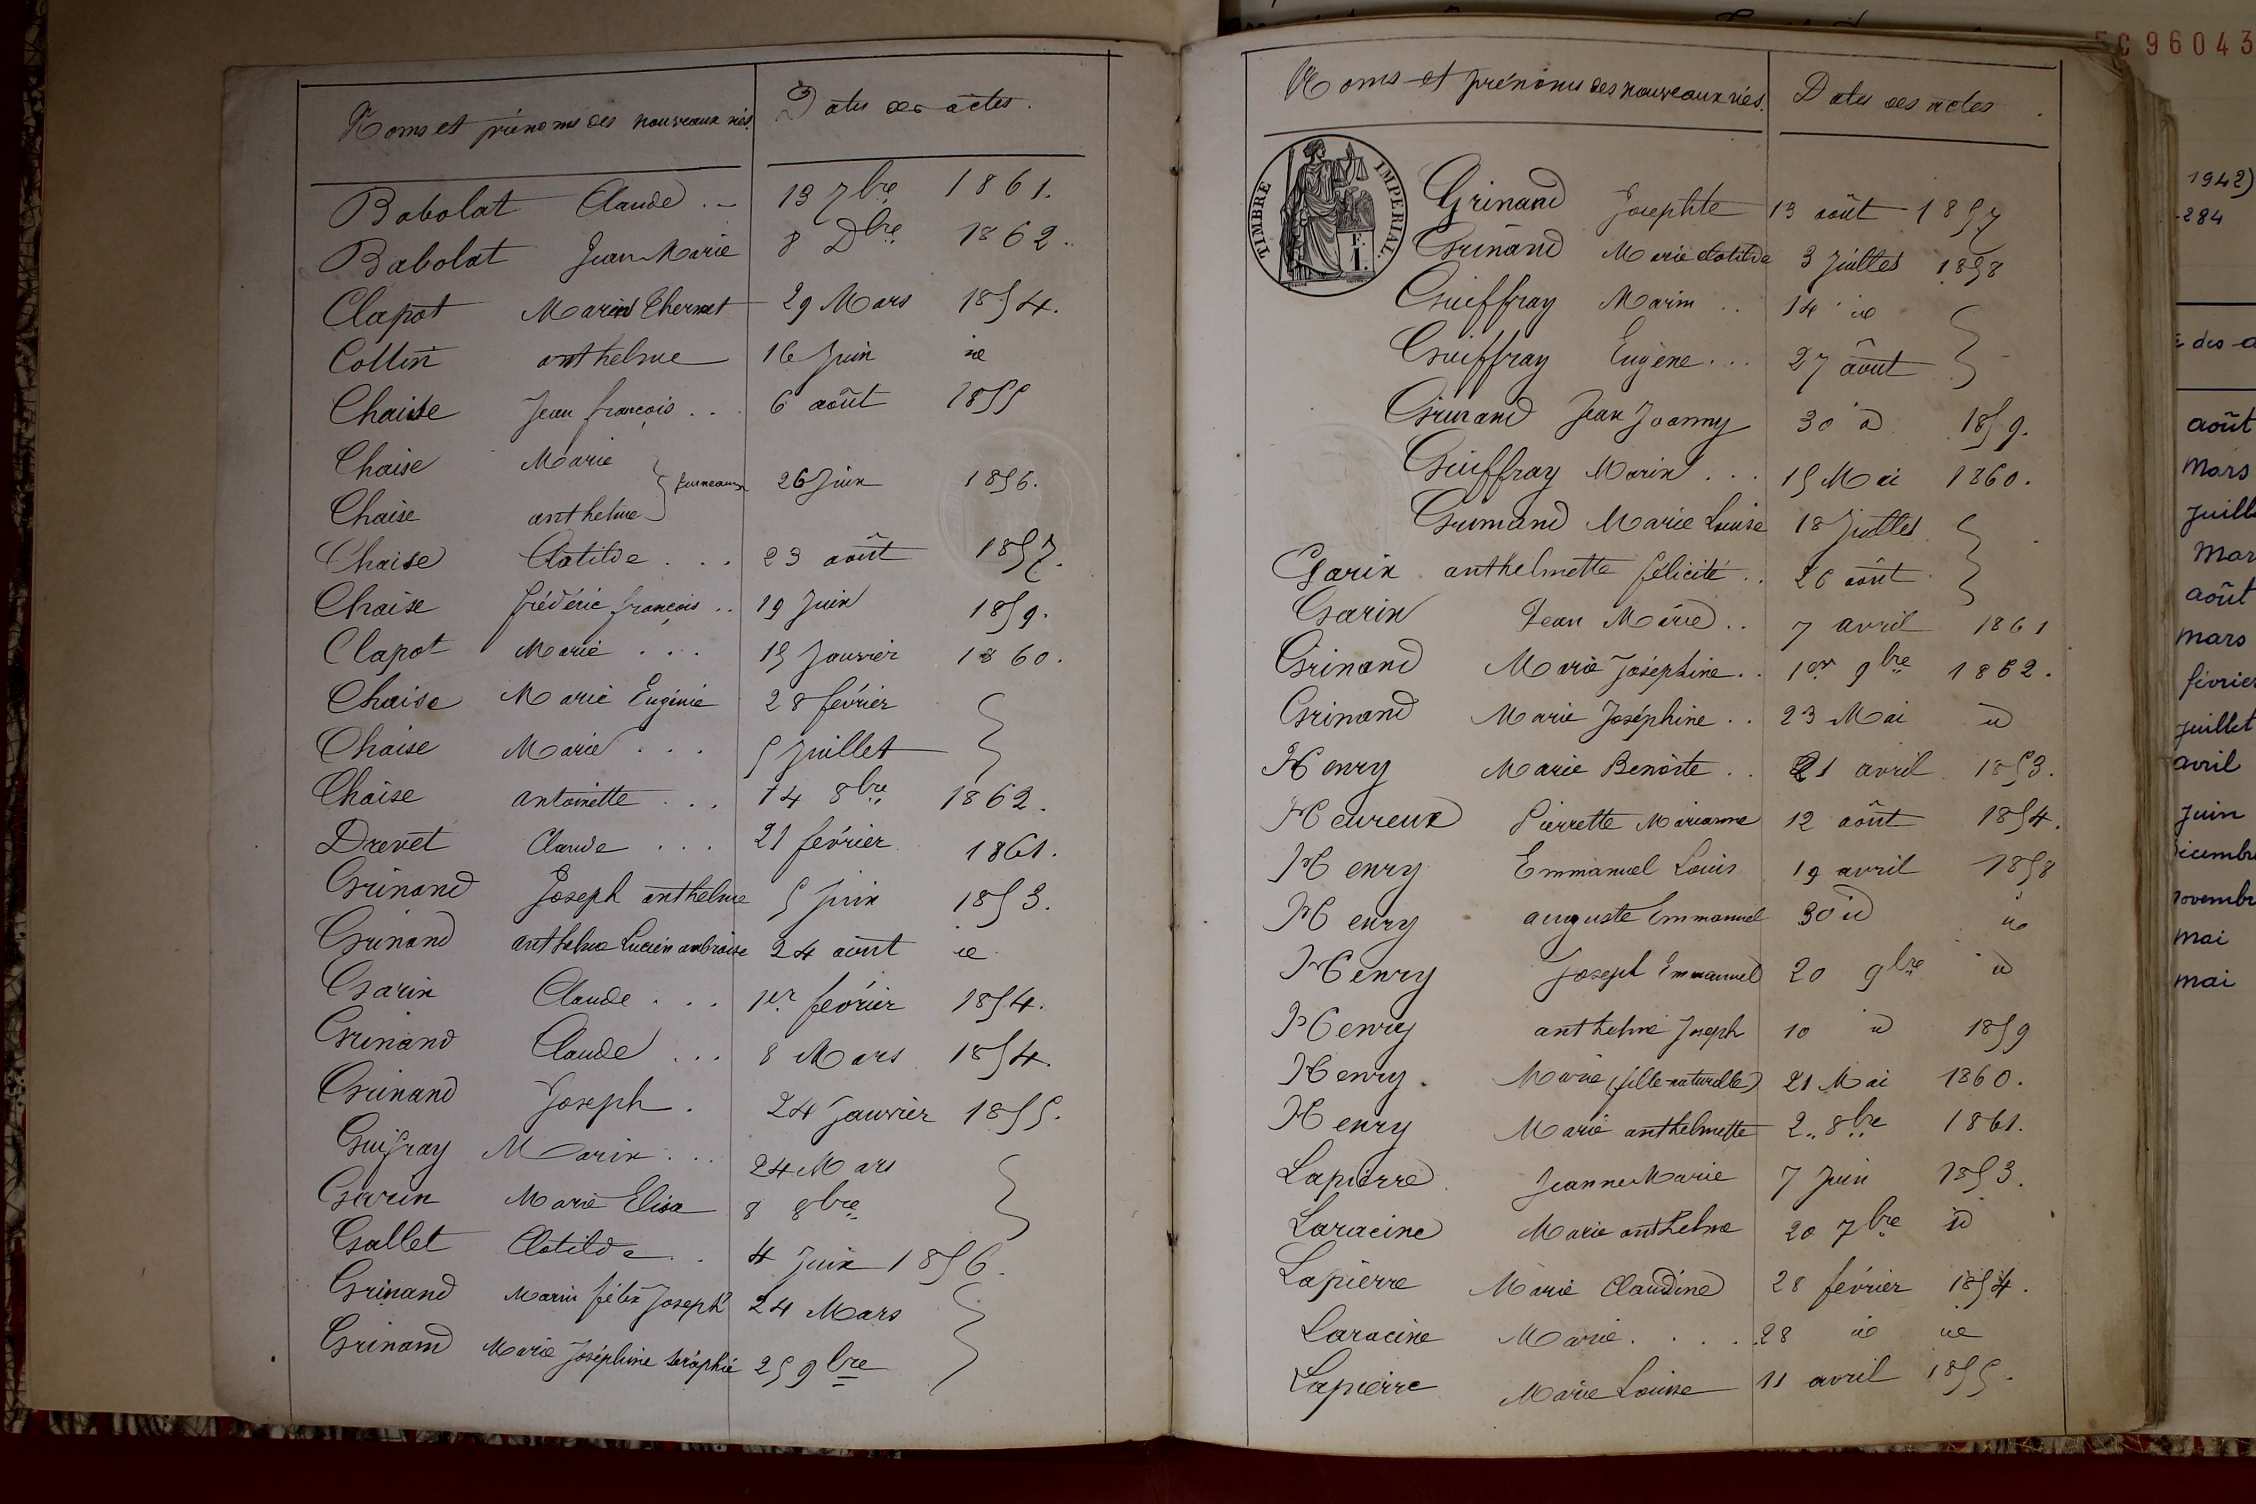 Noms et prénoms des nouveaux nés. Dates des actes.
Babolat Claude . - 13 7bre 1861.
Babolat Jean Marie 8 Dbre 1862.
Clapot Marin Thermet 29 Mars 1854.
Collin anthelme 16 Juin id
Chaise Jean françois . . 6 août 1855
Chaise Marie
jumeaux 26 Juin 1856.
Chaise anthelme
Chaise Clotilde . . . 23 août 1857.
Chaise frédéric françois . . 19 Juin 1859.
Clapot Marie . . . 15 Janvier 1860.
Chaise Marie Eugénie 28 février
Chaise Marie . . . 5 Juillet
Chaise antoinette . . . 14 8bre 1862.
Drevet Claude . . . 21 février 1861.
Grinand Joseph anthelme 5 juin 1853.
Grinand anthelme Lucien ambroise 24 août id
Garin Claude . . . 1er février 1854.
Grinand Claude . . . 8 Mars 1854.
Grinand Joseph . 24 Janvier 1855.
Guifray Marin . . . 24 Mars
Garin Marie Elisa 8 8bre
Gallet Clotilde . . 4 Juin 1856.
Grinand Marin félix Joseph 24 Mars
Grinand Marie Joséphine Séraphie 25 9bre
Noms et prénoms des nouveaux nés. Dates des actes.
TIMBRE IMPERIAL.
1F.
Grinand Josephte 13 août 1857
Grinand Marie clotilde 3 Juillet 1858
Guiffray Marin . . 14 id
Guiffray Eugène . . . 27 août
Grinand Jean Joanny 30 id 1859.
Guiffray Marin . . . 15 Mai 1860.
Grinand Marie Louise 18 Juillet
Garin anthelmette félicité . . 26 août
Garin Jean Marie . . 7 avril 1861
Grinand Marie Joséphine . . 1er 9bre 1862.
Grinand Marie Joséphine . . 23 Mai id
Henry Marie Benoîte . . 21 avril 1853.
Heureux Pierrette Marianne 12 août 1854.
Henry Emmanuel Louis 19 avril 1858
Henry auguste Emmanuel 30 id id
Henry Joseph Emmanuel 20 9bre id
Henry anthelme Joseph 10 id 1859
Henry . Marie (fille naturelle) 21 Mai 1860.
Henry Marie anthelmette 2 .. 8bre 1861.
Lapierre Jeanne Marie 7 Juin 1853.
Laracine Marie anthelme 20 7bre id
Lapierre Marie Claudine 28 février 1854.
Laracine Marie . . . . 28 id id
Lapierre Marie Louise 11 avril 1855.
96043
1942)
284
des a
août
Mars
juill
Mar
août
mars
février
juillet
avril
juin
mai
mai